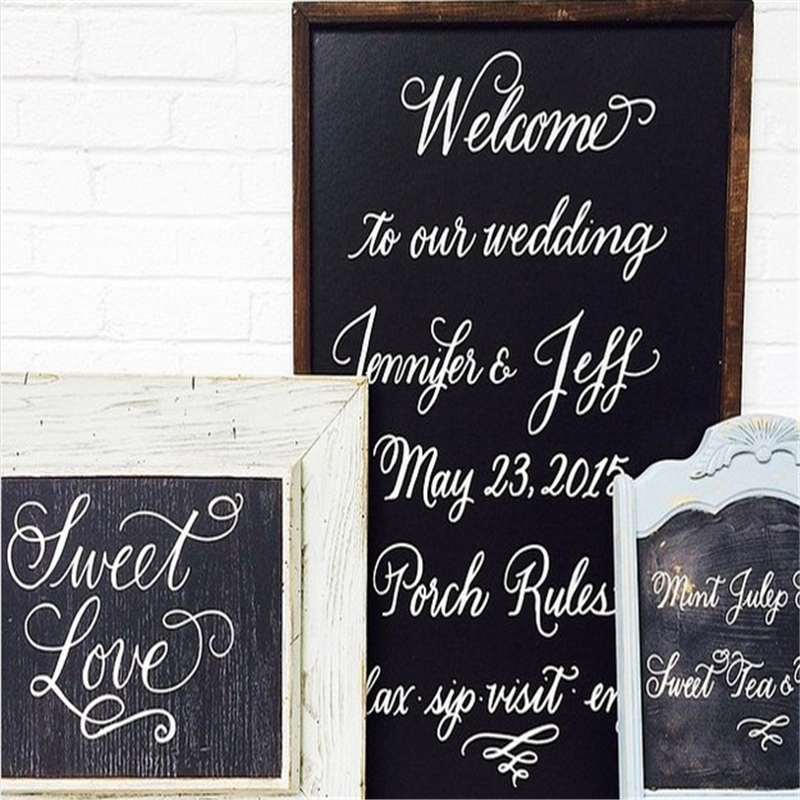 Welcome
to our wedding
Jennifer & Jeff
May 23, 2015
Porch Rules
sip · visit ·
Sweet
Love
Mint Julep
Sweet Tea &